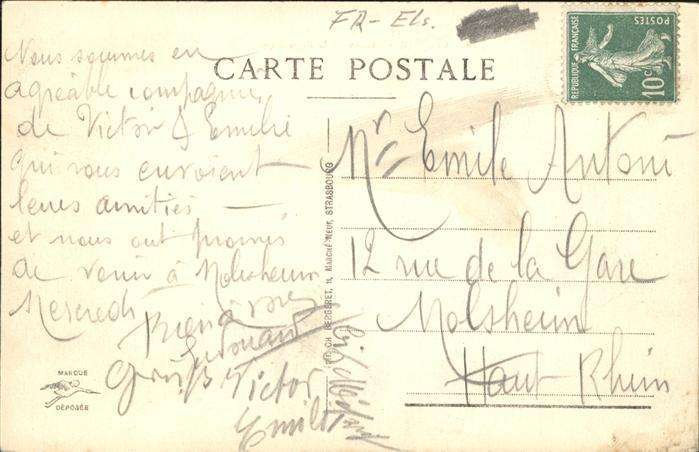 FR-Els.
CARTE POSTALE
RÉPUBLIQUE FRANÇAISE
POSTES
10c
Nous sommes en
agréable compagnie
de Victor & Emilie
qui vous envoient
leurs amitiés —
et nous ont promis
de venir à Molsheim
Mercredi
Edouard
Victor
Emilie
MARQUE
DÉPOSÉE
BERGERET, 11, MARCHÉ-NEUF, STRASBOURG
Mr Emile Antoni
12 rue de la Gare
Molsheim
Haut-Rhin